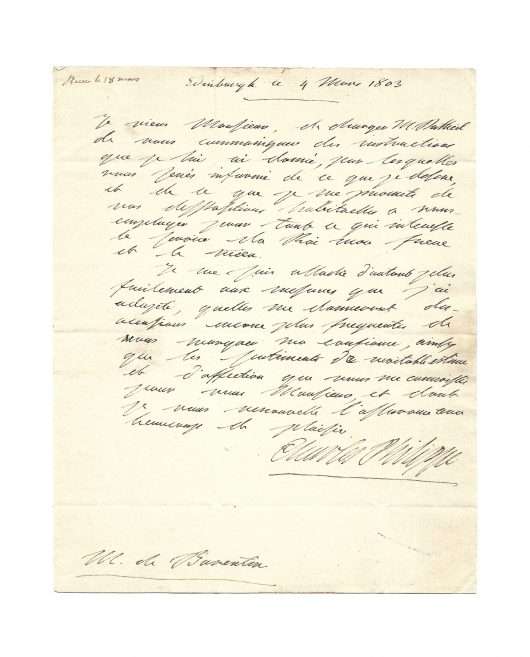 Recu le 18 mars
Edinburgh ce 4 Mars 1803
Je viens Monsieur, de charger M.
de vous communiquer des instructions
que je lui ai donné, par lesquelles
vous serés informé de ce que je desire,
et de ce que je me promets de
vos dispositions habituelles a vous
employer pour tout ce qui interesse
le service du Roi mon frere
et le mien.
Je me suis attaché d'autant plus
facilement aux mesures que j'ai
adopté, qu'elles me donneront des
occasions encore plus frequentes de
vous marquer ma confiance, ainsy
que les sentiments de veritable estime
et d'affection que vous me connoissés
pour vous Monsieur, et dont
je vous renouvelle l'assurance avec
beaucoup de plaisir
Charles Philippe
M. de Barentin